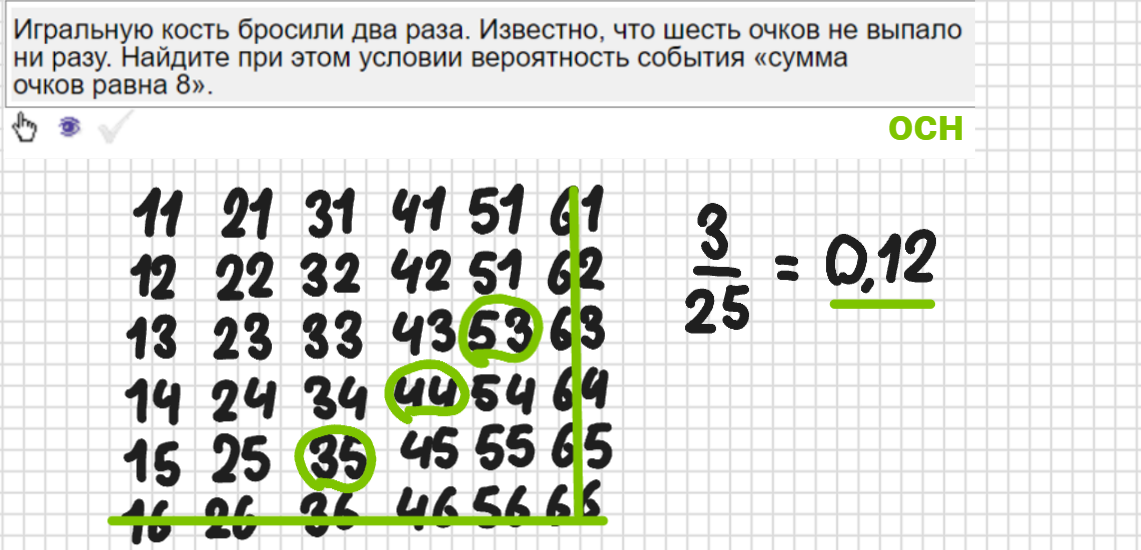 Игральную кость бросили два раза. Известно, что шесть очков не выпало
ни разу. Найдите при этом условии вероятность события «сумма
очков равна 8».
осн
11 21 31 41 51 61
12 22 32 42 51 62
13 23 33 43 53 63
14 24 34 44 54 64
15 25 35 45 55 65
16 26 36 46 56 66
3/25 = 0,12